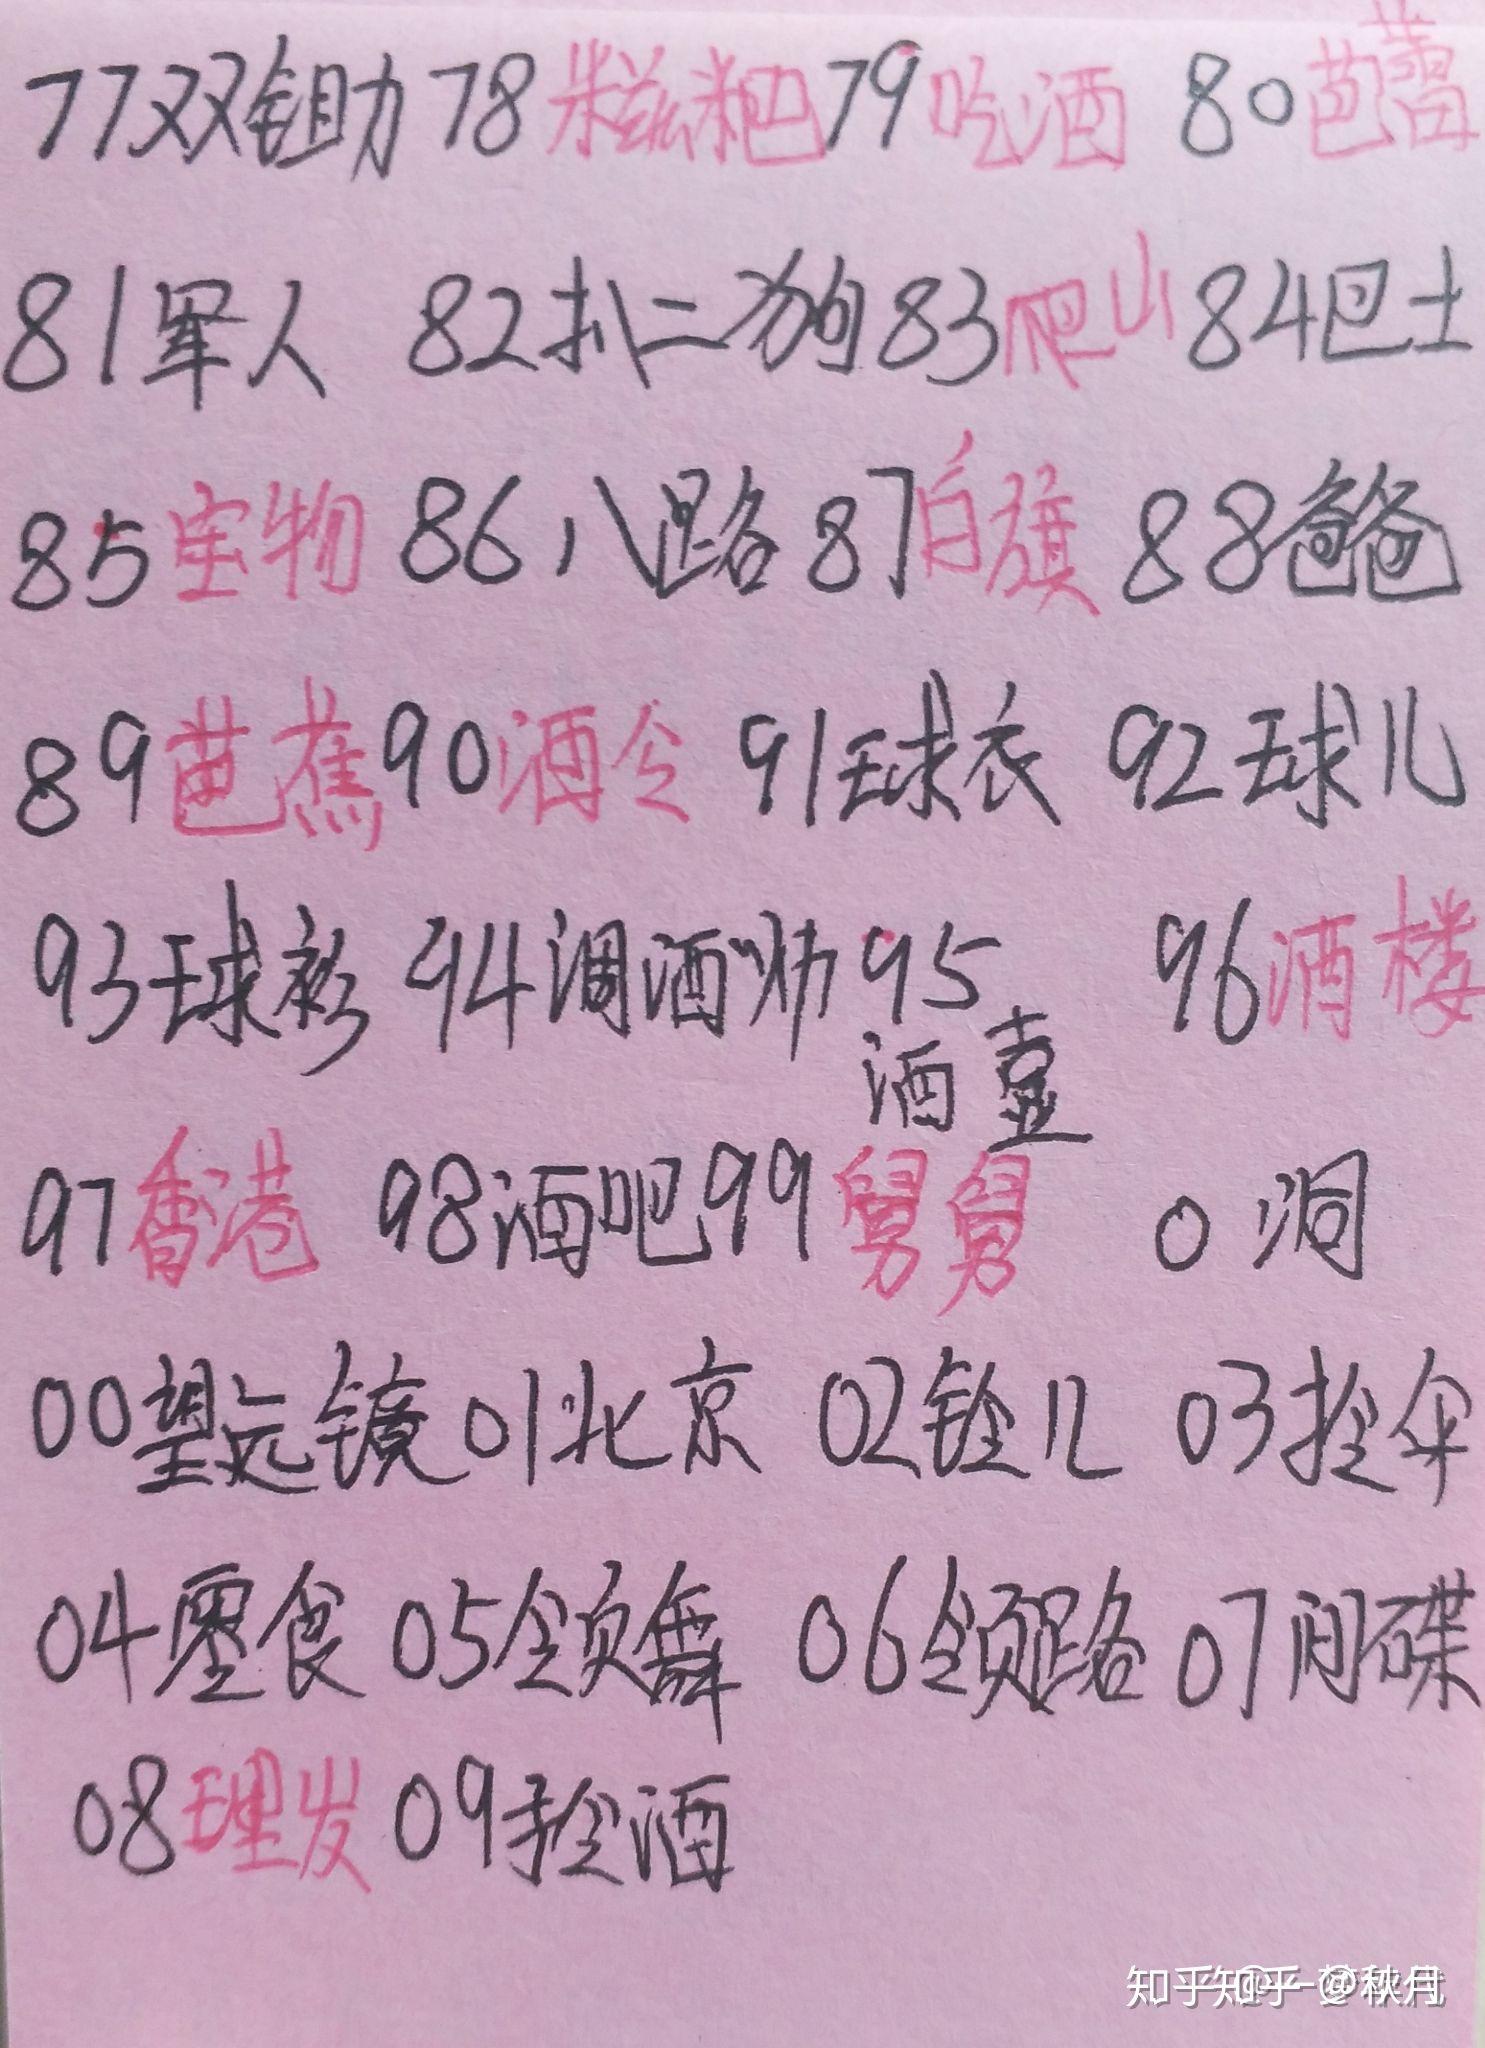 77双锄 78糍粑 79吃酒 80芭蕾
81军人 82扒二狗 83爬山 84巴士
85宝物 86八路 87白旗 88爸爸
89芭蕉 90酒令 91球衣 92球儿
93球衫 94调酒师 95酒壶 96酒楼
97香港 98酒吧 99舅舅 0洞
00望远镜 01北京 02铃儿 03拎伞
04零食 05领舞 06领路 07间碟
08理发 09拎酒
知乎 @秋月